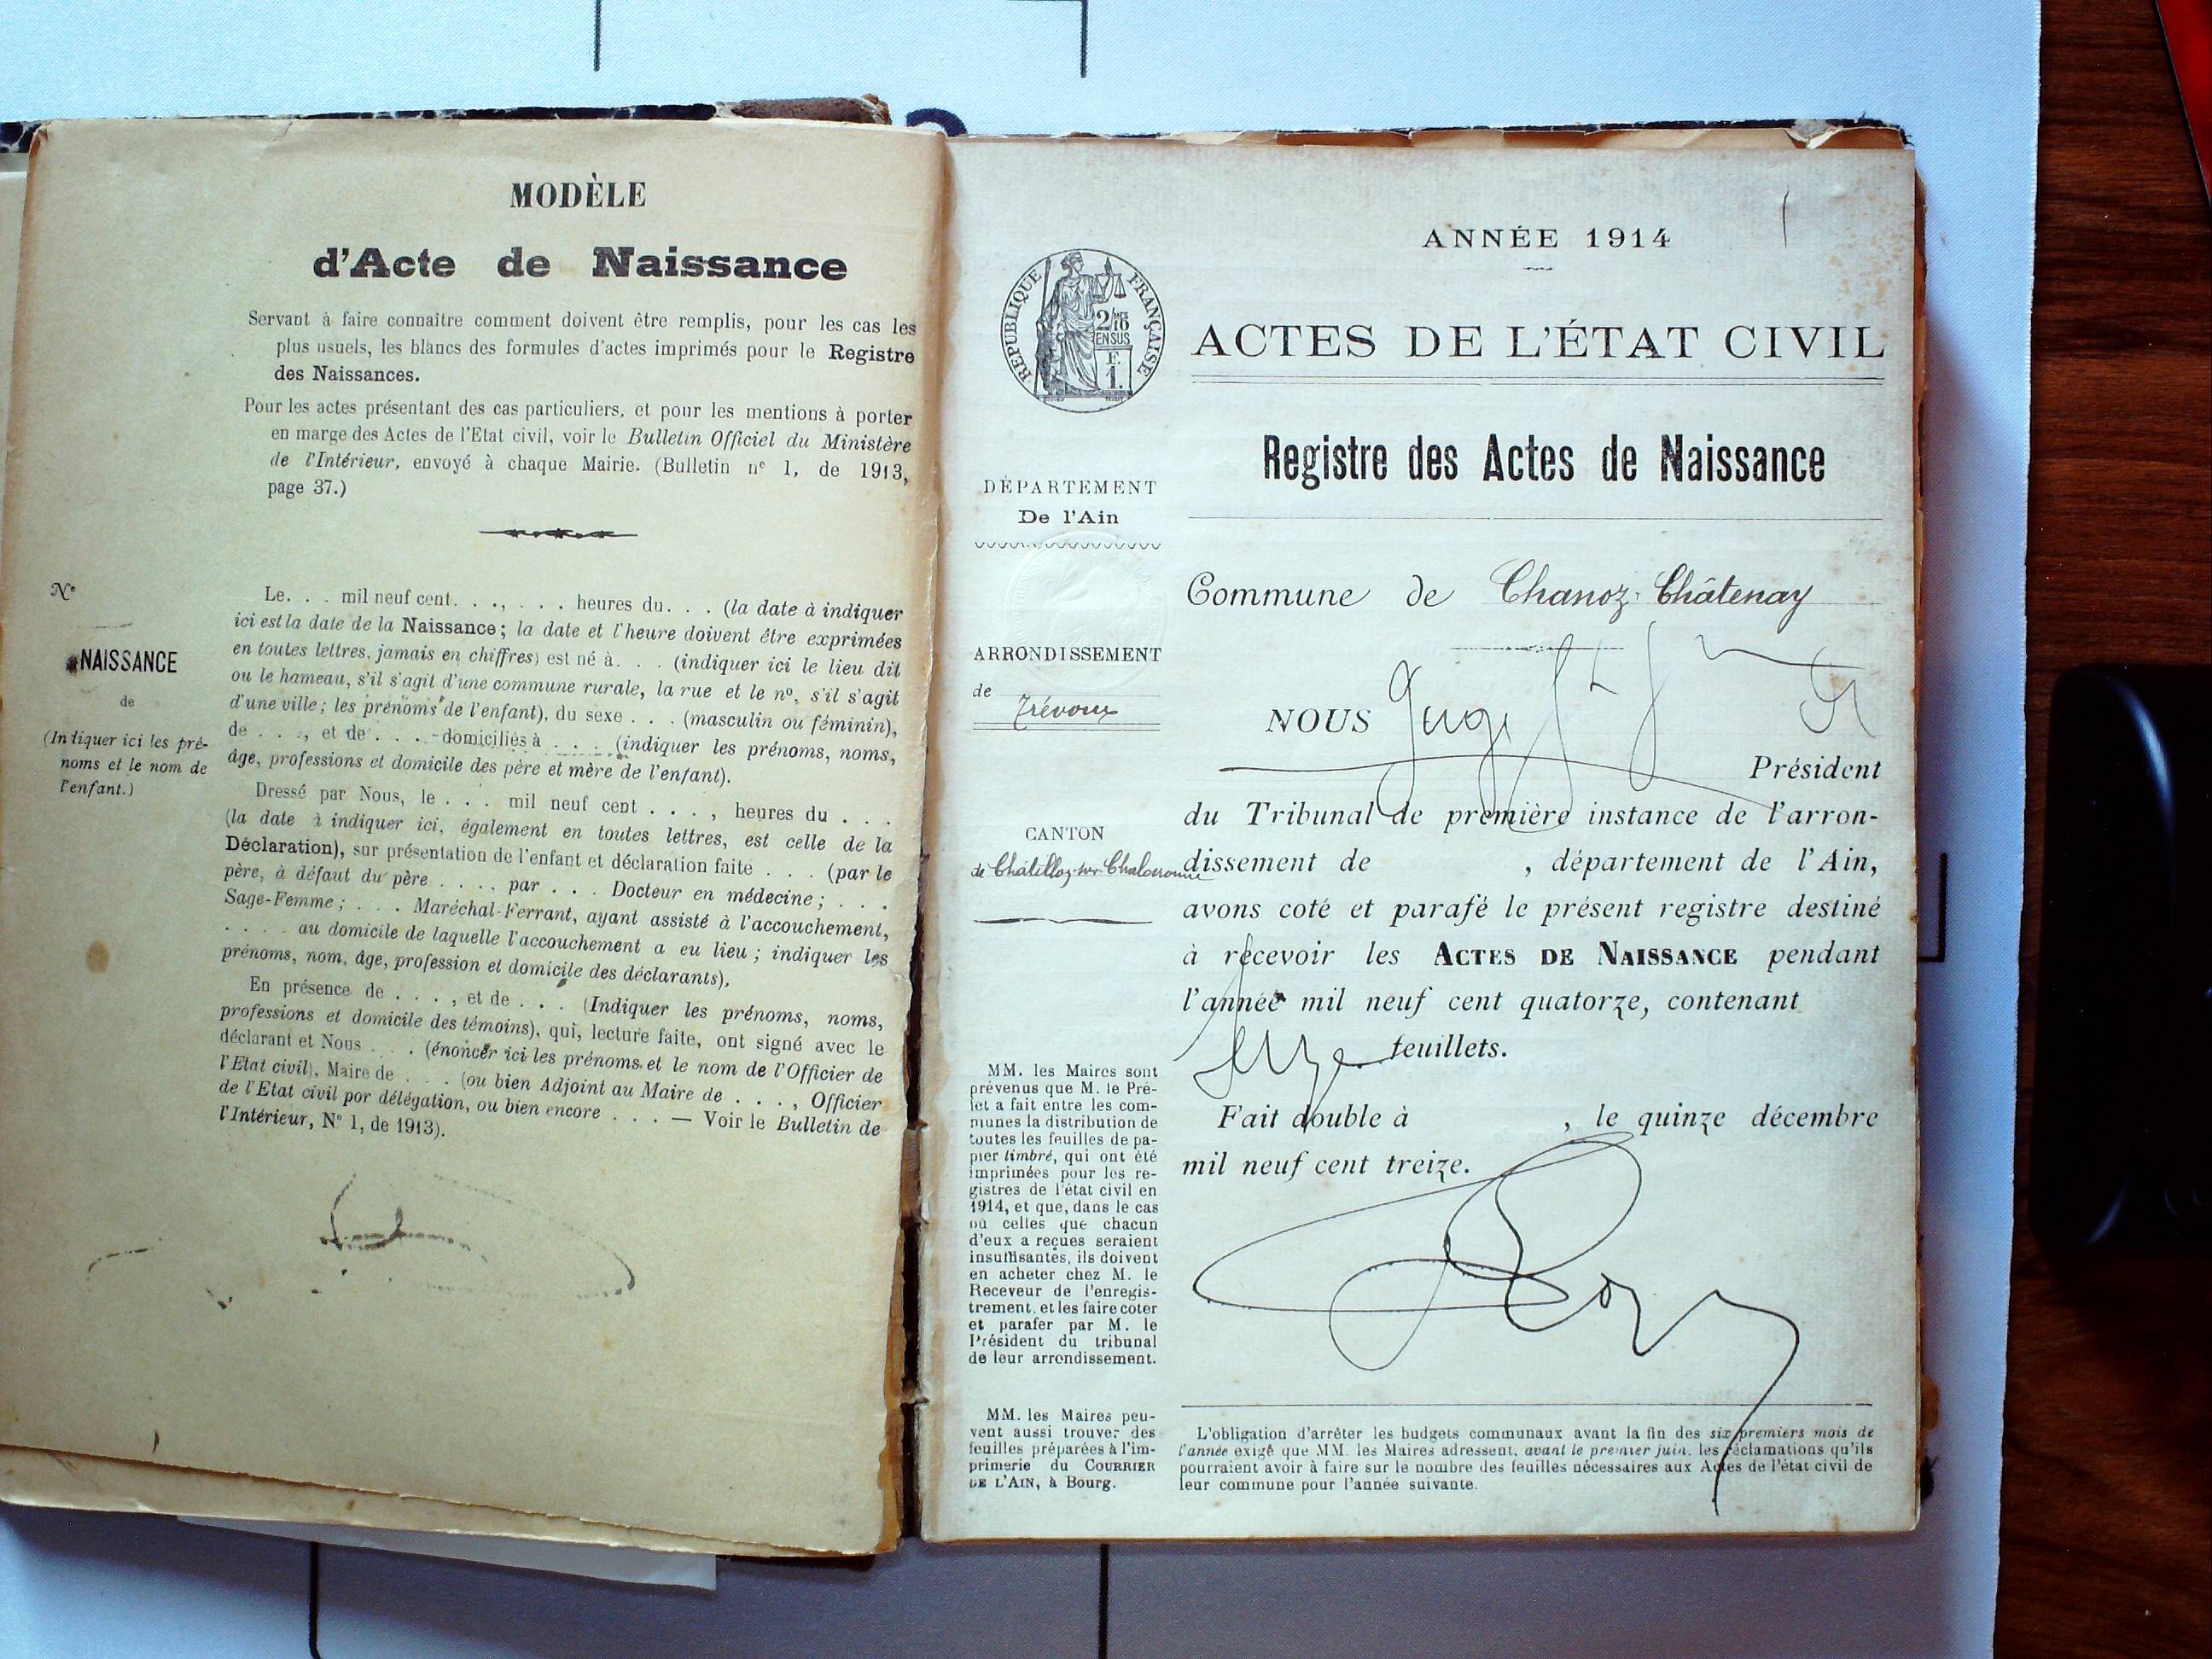 MODÈLE
d'Acte de Naissance
Servant à faire connaître comment doivent être remplis, pour les cas les
plus usuels, les blancs des formules d'actes imprimés pour le Registre
des Naissances.
Pour les actes présentant des cas particuliers, et pour les mentions à porter
en marge des Actes de l'Etat civil, voir le Bulletin Officiel du Ministère
de l'Intérieur, envoyé à chaque Mairie. (Bulletin nº 1, de 1913,
page 37.)
Nº
NAISSANCE
de
(Indiquer ici les pré-
noms et le nom de
l'enfant.)
Le. . . mil neuf cent. . ., . . . heures du. . . (la date à indiquer
ici est la date de la Naissance; la date et l'heure doivent être exprimées
en toutes lettres, jamais en chiffres) est né à. . . (indiquer ici le lieu dit
ou le hameau, s'il s'agit d'une commune rurale, la rue et le nº, s'il s'agit
d'une ville; les prénoms de l'enfant), du sexe . . . (masculin ou féminin),
de . . ., et de . . . domiciliés à . . . (indiquer les prénoms, noms,
âge, professions et domicile des père et mère de l'enfant).
Dressé par Nous, le . . . mil neuf cent . . . , heures du . . .
(la date à indiquer ici, également en toutes lettres, est celle de la
Déclaration), sur présentation de l'enfant et déclaration faite . . . (par le
père, à défaut du père . . . , par . . . Docteur en médecine; . . .
Sage-Femme; . . . Maréchal-Ferrant, ayant assisté à l'accouchement,
. . . . au domicile de laquelle l'accouchement a eu lieu; indiquer les
prénoms, nom, âge, profession et domicile des déclarants),
En présence de . . . , et de . . . (Indiquer les prénoms, noms,
professions et domicile des témoins), qui, lecture faite, ont signé avec le
déclarant et Nous . . . (énoncer ici les prénoms et le nom de l'Officier de
l'Etat civil), Maire de . . . (ou bien Adjoint au Maire de . . . , Officier
de l'Etat civil por délégation, ou bien encore . . . — Voir le Bulletin de
l'Intérieur, Nº 1, de 1913).
ANNÉE 1914
RÉPUBLIQUE FRANÇAISE
2/10
EN SUS
F.
1.
ACTES DE L'ÉTAT CIVIL
Registre des Actes de Naissance
DÉPARTEMENT
De l'Ain
Commune de Chanoz-Châtenay
ARRONDISSEMENT
de Trévoux
CANTON
de Châtillon-sur-Chalaronne
NOUS
Président
du Tribunal de première instance de l'arron-
dissement de , département de l'Ain,
avons coté et parafé le présent registre destiné
à recevoir les ACTES DE NAISSANCE pendant
l'année mil neuf cent quatorze, contenant
feuillets.
Fait double à , le quinze décembre
mil neuf cent treize.
MM. les Maires sont
prévenus que M. le Pré-
fet a fait entre les com-
munes la distribution de
toutes les feuilles de pa-
pier timbré, qui ont été
imprimées pour les re-
gistres de l'état civil en
1914, et que, dans le cas
où celles que chacun
d'eux a reçues seraient
insuffisantes, ils doivent
en acheter chez M. le
Receveur de l'enregis-
trement, et les faire coter
et parafer par M. le
Président du tribunal
de leur arrondissement.
MM. les Maires peu-
vent aussi trouver des
feuilles préparées à l'im-
primerie du COURRIER
DE L'AIN, à Bourg.
L'obligation d'arrêter les budgets communaux avant la fin des six premiers mois de
l'année exige que MM. les Maires adressent, avant le premier juin, les réclamations qu'ils
pourraient avoir à faire sur le nombre des feuilles nécessaires aux Actes de l'état civil de
leur commune pour l'année suivante.